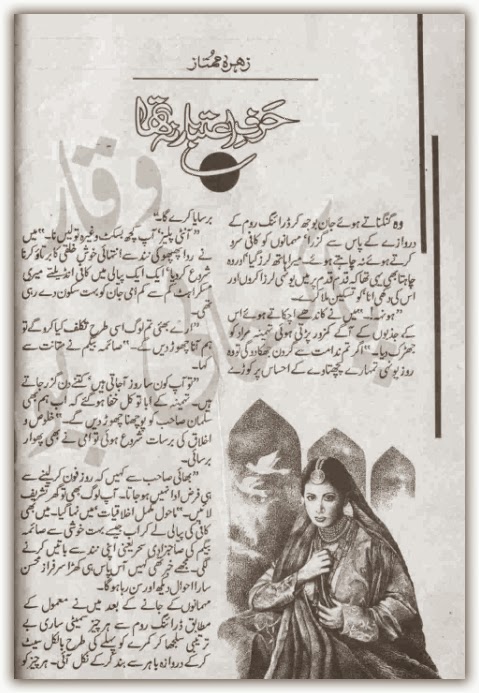 زہرہ ممتاز
حرفِ اعتبار نہ تھا
وہ گنگناتے ہوئے جان بوجھ کر ڈرائنگ روم کے
دروازے کے پاس سے گزرا‘ مہمانوں کو کافی سرو
کرتے ہوئے نہ چاہتے ہوئے میرا ہاتھ لرز گیا‘ اور وہ
چاہتا بھی یہی تھا کہ قدم قدم پر میں یونہی لرزا کروں اور
اس کی دکھی انا کو تسکین ملا کرے۔
”ہونہہ!۔“ میں نے کاندھے اچکاتے ہوئے اس
کے، جذبوں کے آگے کمزور پڑتی ہوئی تہمینہ مراد کو
جھڑک دیا۔ ”اگر تم ندامت سے گردن جھکا دو گی تو وہ
روز یونہی تمہارے پچھتاوے کے احساس پر کوڑے
برسایا کرے گا۔“
”آنٹی پلیز‘ آپ کچھ بسکٹ وغیرہ تو لیں نا۔“ میں
نے ردا پھپھو کی نند سے انتہائی خوش خلقی کا برتاؤ کرنا
شروع کر دیا‘ ایک ایک پیالی میں کافی انڈیلتے میری
مسکراہٹ کم سے کم امی جان کو بہت سکون دے رہی
تھی۔
”ارے بھئی تم لوگ اسی طرح تکلف کیا کرو گے تو
ہم آنا چھوڑ دیں گے۔“ صائمہ بیگم نے متانت سے
کہا۔
”تو آپ کون سا روز آجاتی ہیں‘ کتنے دن گزر جاتے
ہیں۔ تہمینہ کے ابا تو کل خفا ہو گئے کہ اب ہم بھی
سلمان صاحب کو پوچھنا چھوڑ دیں گے۔“ خلوص و
اخلاق کی برسات شروع ہوئی تو امی نے بھی پھوار
برسائی۔
”بھائی صاحب سے کہیں کہ روز فون کر لینے سے
ہی فرض ادا نہیں ہو جاتا۔ آپ لوگ بھی تو گھر تشریف
لائیں۔“ ماحول مکمل اخلاقیات میں نہا گیا۔ میں بھی
کافی کی پیالی لے کر آپ جیسے بہت خوشی سے صائمہ
بیگم کی صاحبزادی سحر یعنی اپنی نند سے باتیں کرنے
لگی۔ مجھے خبر تھی کہیں آس پاس ہی کھڑا سرفراز محسن
سارا احوال دیکھ اور سن رہا ہو گا۔
مہمانوں کے جانے کے بعد میں نے معمول کے
مطابق ڈرائنگ روم سے ہر چیز سمیٹی ساری بے
ترتیبی سلجھا کر کمرے کو پہلے کی طرح بالکل سیٹ
کر کے دروازہ باہر سے بند کر کے نکل آئی۔ ہر چیز کو